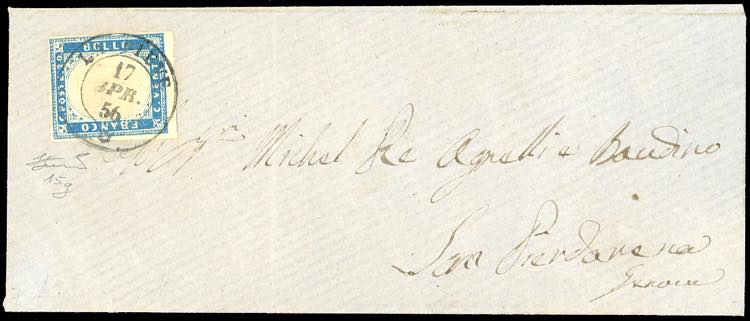 BOLLO
C. POSTE 20
C. VENTI
FRANCO
17
APR.
56
15g
Michel Re Agnelli e Baudino
San Pierdarena
Genova